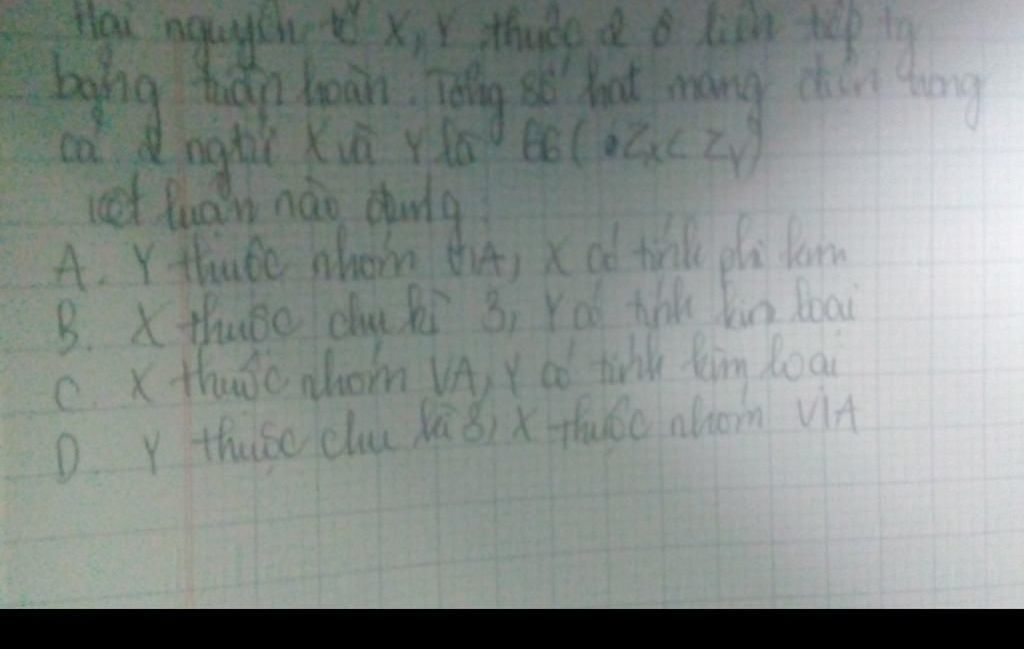 Hai nguyên tử X, Y thuộc 2 ô liên tiếp tg
bảng tuần hoàn. Tổng số hạt mang điện trong
cả 2 ngtử X và Y là 66 ( Zx < Zy)
kết luận nào đúng
A. Y thuộc nhóm VIA, X có tính phi kim
B. X thuộc chu kì 3, Y có tính kim loại
C. X thuộc nhóm VA, Y có tính kim loại
D. Y thuộc chu kì 3, X thuộc nhóm VIA